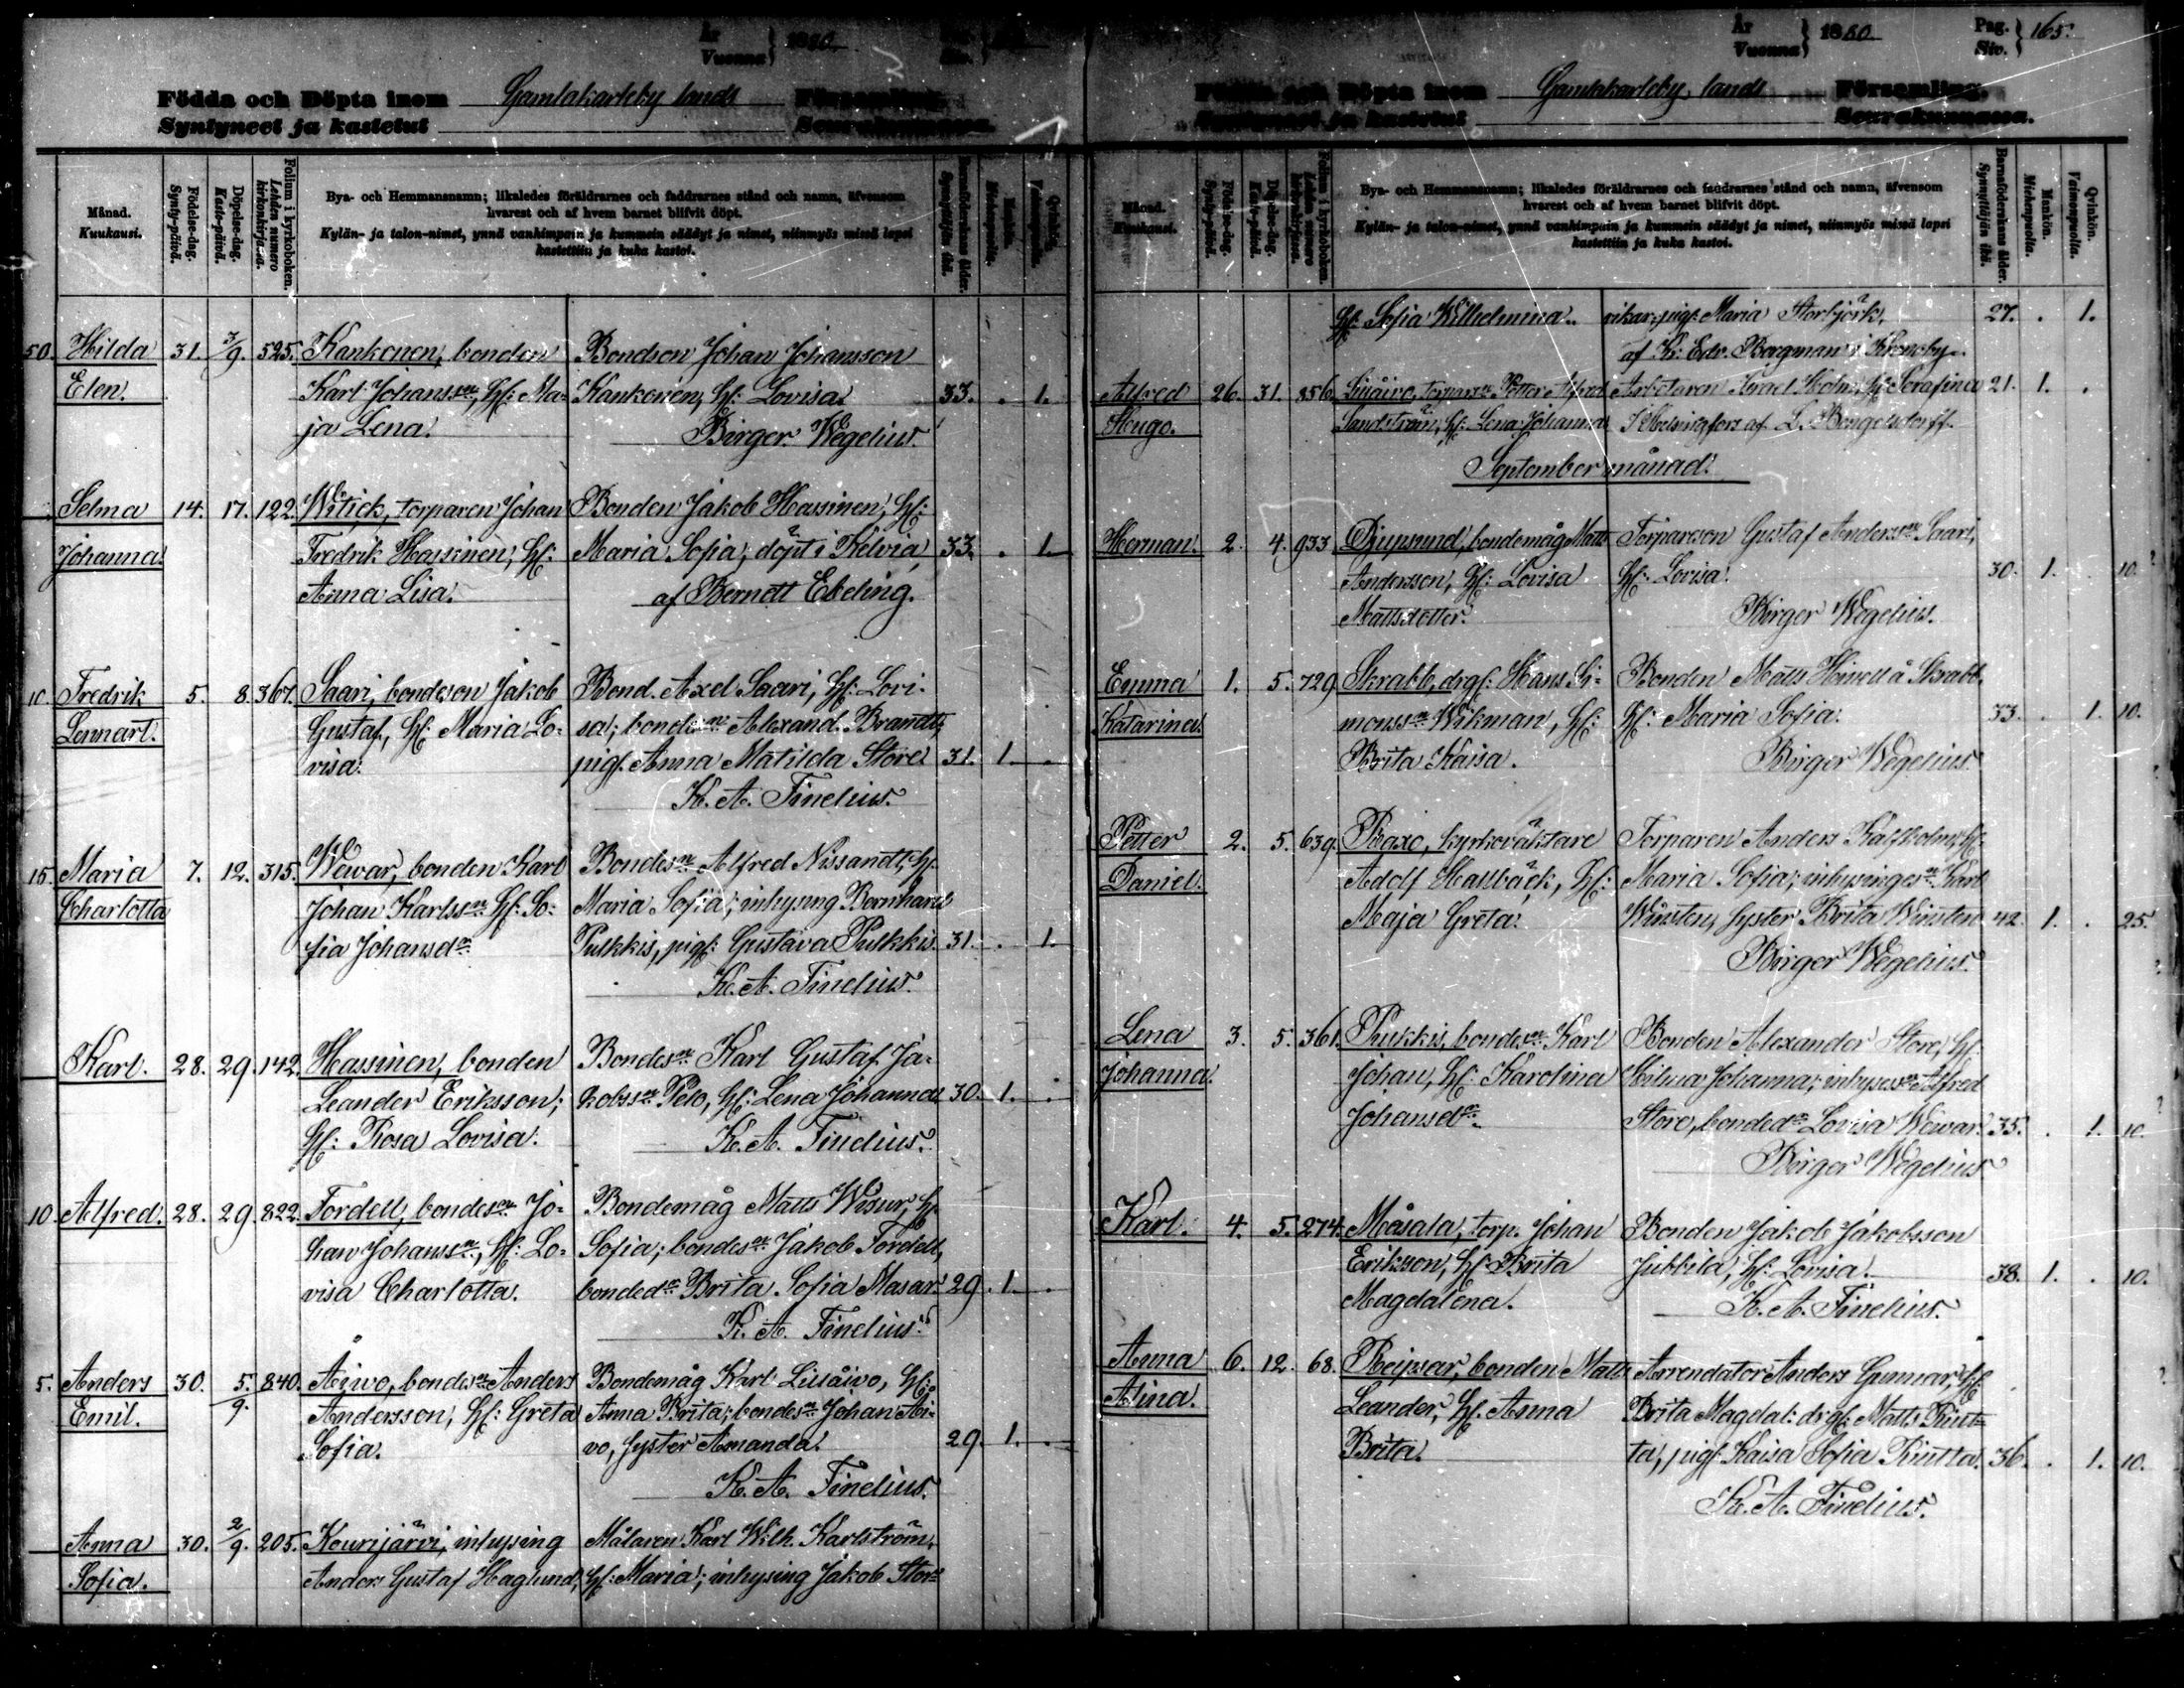 År Vuonna } 1880.
Födda och Döpta inom Gamlakarleby lands Församling.
Syntyneet ja kastetut Seurakunnassa.
Månad. Kuukausi.
Födelse-dag. Synty-päivä.
Döpelse-dag. Kaste-päivä.
Folium i kyrkoboken. Lehden numero kirkonkirjassa.
Bya- och Hemmansnamn; likaledes föräldrarnes och faddrarnes stånd och namn, äfvensom
hvarest och af hvem barnet blifvit döpt.
Kylän- ja talon-nimet, ynnä vanhimpain ja kummein säädyt ja nimet, niinmyös missä lapsi
kastettiin ja kuka kastoi.
50. Hilda 31. 3/9. 525. Kankonen, bonden Bondson Johan Johansson
Elen. Karl Johanssn, hf: Ma- Kankonen, hf: Lovisa. 33. . 1.
ja Lena. Birger Wegelius.
Selma 14. 17. 122. Witick, torparen Johan Bonden Jakob Hassinen, hf:
Johanna. Fredrik Hassinen, hf: Maria Sofia, döpt i Kelviå 33. . 1.
Anna Lisa. af Berndt Ebeling.
10. Fredrik 5. 8. 361. Saari, bondeson Jakob Bond. Axel Saari, hf: Lovi-
Lennart. Gustaf, hf: Maria Lo- sa; bondesn Alexand. Brandt,
visa. pig. Anna Matilda Store 31. 1. .
K. A. Finelius.
15. Maria 7. 12. 315. Wewar, bonden Karl Bondesn Alfred Nissandt, hf.
Charlotta Johan Karlssn hf: So- Maria Sofia; inhysing Bernhard
fia Johansdr Pulkkis, pig: Gustava Pulkkis. 31. . 1.
K. A. Finelius.
Karl. 28. 29. 142. Hassinen, bonden Bondesn Karl Gustaf Ja-
Leander Eriksson; kobssn Pelo, hf: Lena Johanna 30. 1. .
hf: Rosa Lovisa. K. A. Finelius.
10. Alfred. 28. 29. 822. Fordell, bondesn Jo- Bondemåg Matts Wisur, hf.
han Johanssn, hf: Lo- Sofia; bondesn Jakob Fordell,
visa Charlotta. bondedr Brita Sofia Masar. 29. 1. .
K. A. Finelius.
5. Anders 30. 5/9. 840. Åivo, bondesn Anders Bondemåg Karl Lisåivo, hf:
Emil. Andersson, hf: Greta Anna Brita; bondesn Johan Åi-
Sofia. vo, syster Amanda. 29. 1. .
K. A. Finelius.
Anna 30. 2/9. 205. Kourijärvi, inhysing Målaren Karl Wilh. Karlström,
Sofia. Anders Gustaf Haglund, hf: Maria; inhysing Jakob Stor-
År Vuonna } 1880 Pag. Siv. } 165.
Födda och Döpta inom Gamlakarleby lands Församling.
Syntyneet ja kastetut Seurakunnassa.
Månad. Kuukausi.
Födelse-dag. Synty-päivä.
Döpelse-dag. Kaste-päivä.
Folium i kyrkoboken. Lehden numero kirkonkirjassa.
Bya- och Hemmansnamn; likaledes föräldrarnes och faddrarnes stånd och namn, äfvensom
hvarest och af hvem barnet blifvit döpt.
Kylän- ja talon-nimet, ynnä vanhimpain ja kummein säädyt ja nimet, niinmyös missä lapsi
kastettiin ja kuka kastoi.
Barnaföderskans ålder. Synnyttäjän ikä.
Mankön. Miehenpuolta.
Qvinkön. Vaimonpuolta.
hf: Sofia Wilhelmina. vikar, pigf. Maria Storbjörk, 27. . 1.
af K: Edv. Bergman i Kronoby.
Alfred 26. 31. 856. Lisåivo, torparen Petter Alfred Arbetaren Israel Holm, hf: Serafina 21. 1. .
Hugo. Sandström, hf: Lena Johanna I Helsingfors af L. Bengelsdorff.
September månad.
Herman. 2. 4. 933 Djupsund, bondemåg Matts Torpareson Gustaf Anderssn Saari,
Andersson, hf: Lovisa hf: Lovisa. 30. 1. . 10.
Mattsdotter. Birger Wegelius.
Emma 1. 5. 729 Skrabb, drg: Hans Si- Bonden Matts Hinell å Skrabb,
Katarina. monssn Wikman, hf: hf: Maria Sofia. 33. . 1. 10.
Brita Kaisa. Birger Wegelius.
Petter 2. 5. 639. Raxo, kyrkoväktare Torparen Anders Kaffholm, hf:
Daniel. Adolf Hallbäck, hf: Maria Sofia; inhysingesn Karl
Maja Greta. Winsten, syster Brita Winsten 42. 1. . 25.
Birger Wegelius.
Lena 3. 5. 361. Pukkis, bondesn Karl Bonden Alexander Store, hf:
Johanna. Johan, hf: Karolina Hilma Johanna; inhysesn Alfred
Johansdr. Store, bondedr Lovisa Wewar. 35. . 1. 10.
Birger Wegelius
Karl. 4. 5. 274. Måsala, torp. Johan Bonden Jakob Jakobsson
Eriksson, hf: Brita Jubbila, hf: Lovisa. 38. 1. . 10.
Magdalena. K. A. Finelius.
Anna 6. 12. 68. Reipsar, bonden Matts Arrendator Anders Gunnar, hf.
Alina. Leander, hf. Anna Brita Magdal: drg: Matts Riut-
Brita. ta, pig: Kaisa Sofia Riutta. 36. . 1. 10.
K. A. Finelius.